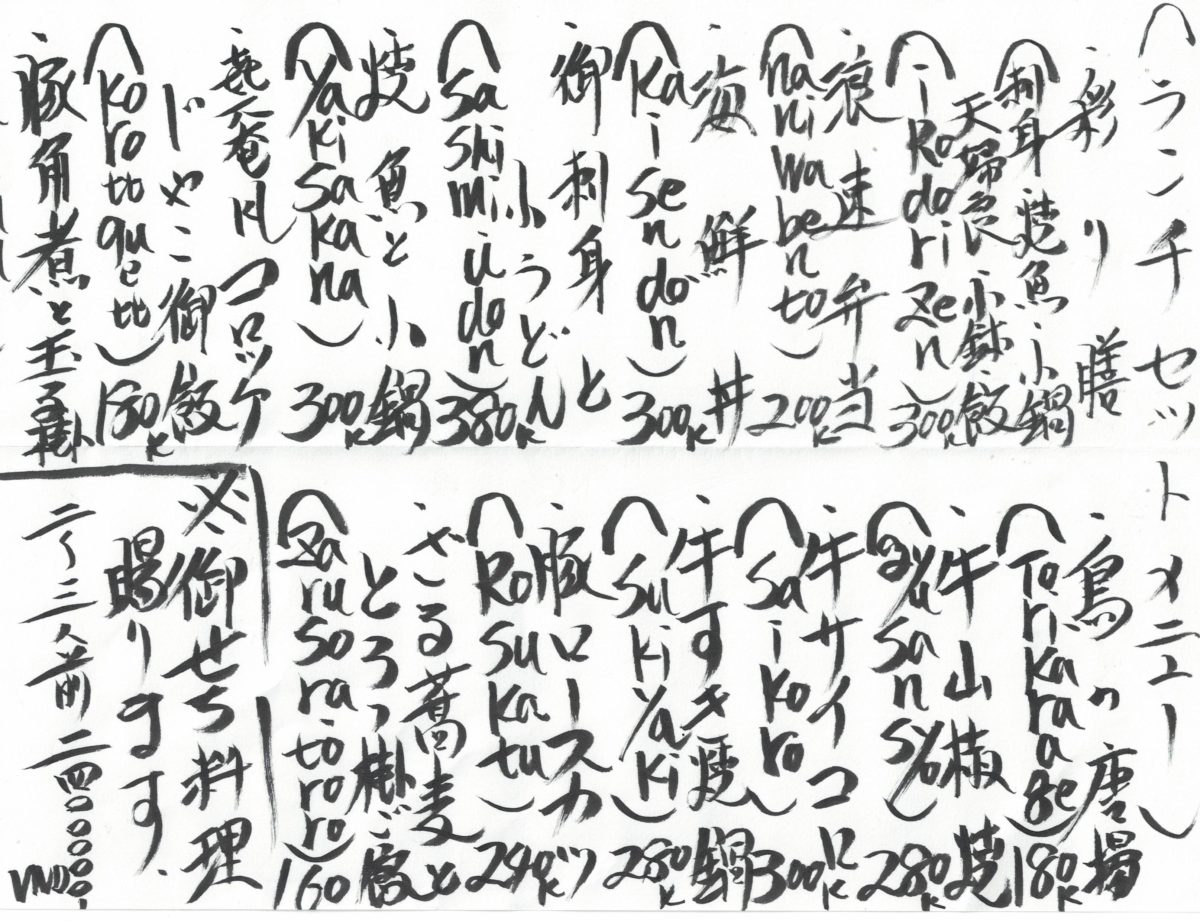 (ランチセットメニュー)
・彩り膳
刺身・焼魚・小鍋
天婦良・小鉢・飯
(i-Rodori Zen) 300K
・浪速弁当
(naniwa bento) 200K
・海鮮丼
(Kaisen don) 300K
・御刺身と
小うどん
(Sashimi. udon) 380K
・焼魚と小鍋
(Yakisakana) 300K
・喜庵風コロッケ
じゃこ御飯
(korottquett) 180K
・豚角煮と玉子掛
・鳥の唐揚
(Torikaraage) 180K
・牛山椒焼
(gyu sansyo) 280K
・牛サイコロ
(Saikoro) 300K
・牛すき焼鍋
(Sukiyaki) 280K
・豚ロースカツ
(Rosukatu) 240K
・ざる蕎麦と
とろろ掛ご飯
(Zarusoratororo) 160
※御せち料理
賜ります.
二〜三人前 二四〇〇〇〇〇. VND